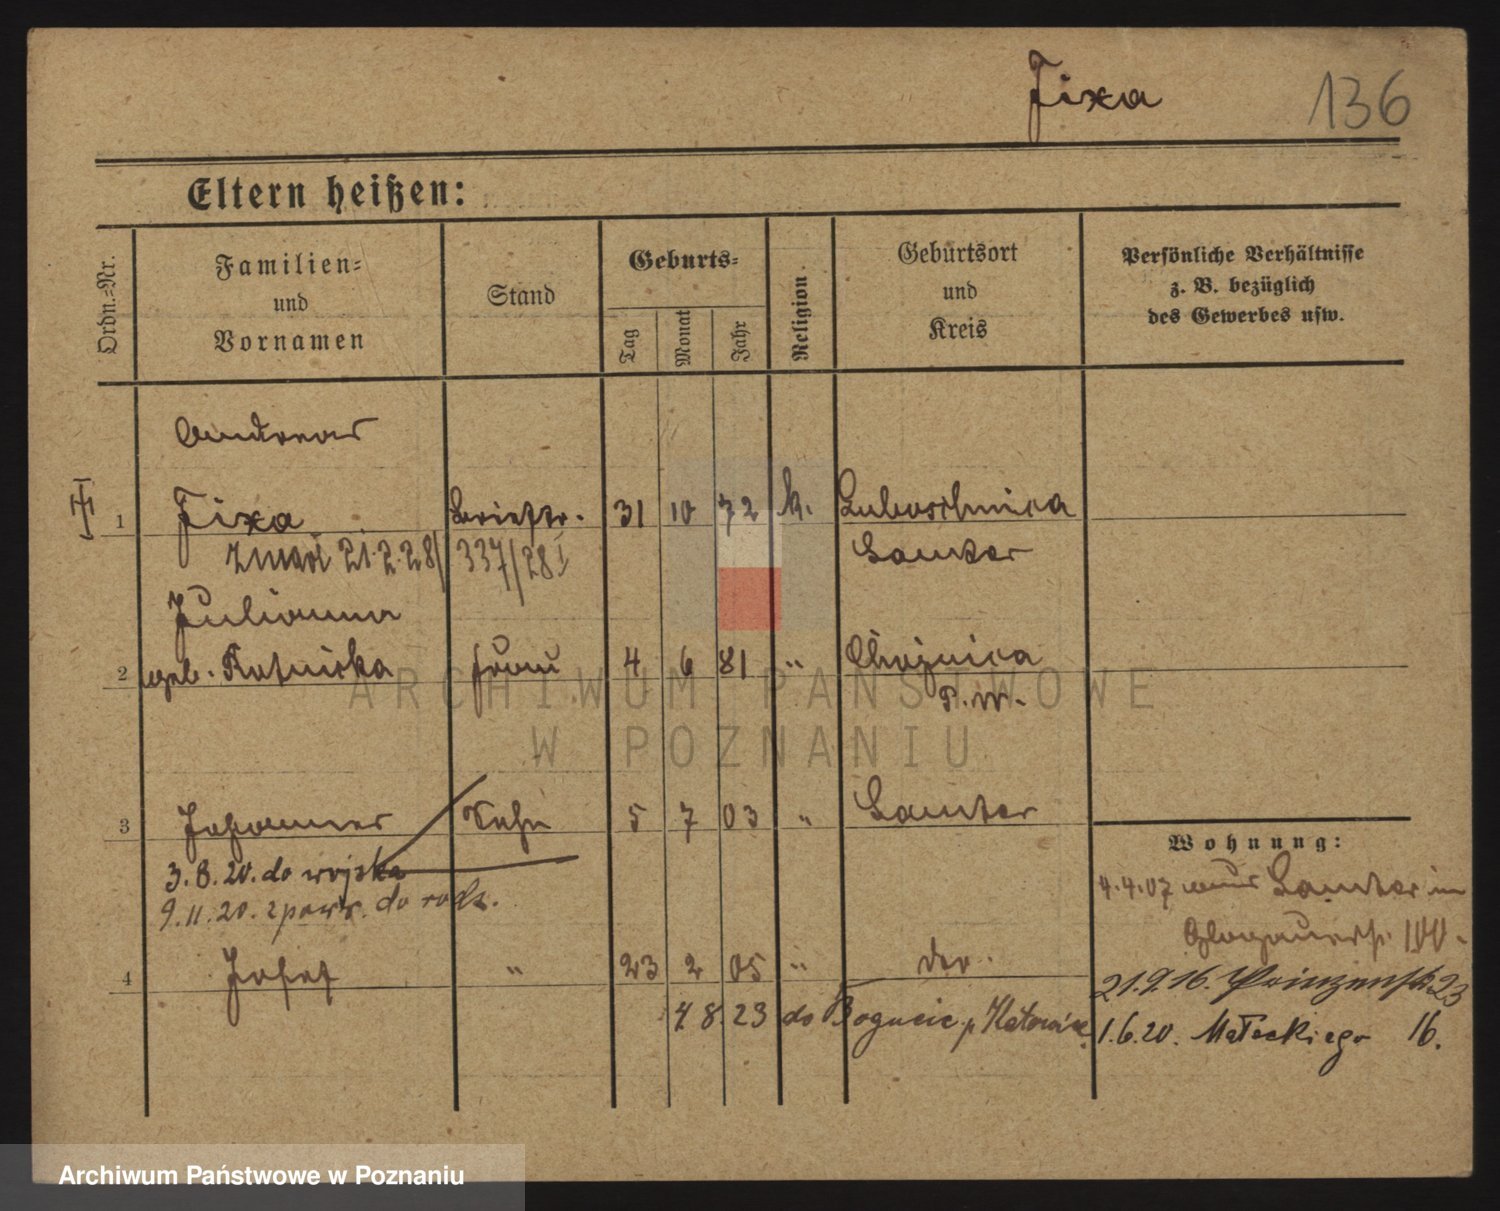 Fixa
136
Eltern heißen:
Ordn.-Nr.
Familien-
und
Vornamen
Stand
Geburts-
Tag
Monat
Jahr
Religion.
Geburtsort
und
Kreis
Persönliche Verhältnisse
z. B. bezüglich
des Gewerbes usw.
Andreas
1 Fixa Brieftr. 31 10 72 k.
zmarł 21.2.28/ 337/28 I Samter
Julianna
2 geb. Frau 4 6 81 " Chojnica
P. W.
3 Johannes Sohn 5 7 03 " Samter
3.8.20. do wojska
9.11.20. z pow. do rodz.
4 Josef " 23 2 05 "
4 8 23 do Bogucic p. Katowice
Wohnung:
4.4.07 aus Samter in
Glogauerstr. 100.
21.9.16. Prinzenstr. 23
1.6.20. Małeckiego 16.
ARCHIWUM PAŃSTWOWE
W POZNANIU
Archiwum Państwowe w Poznaniu